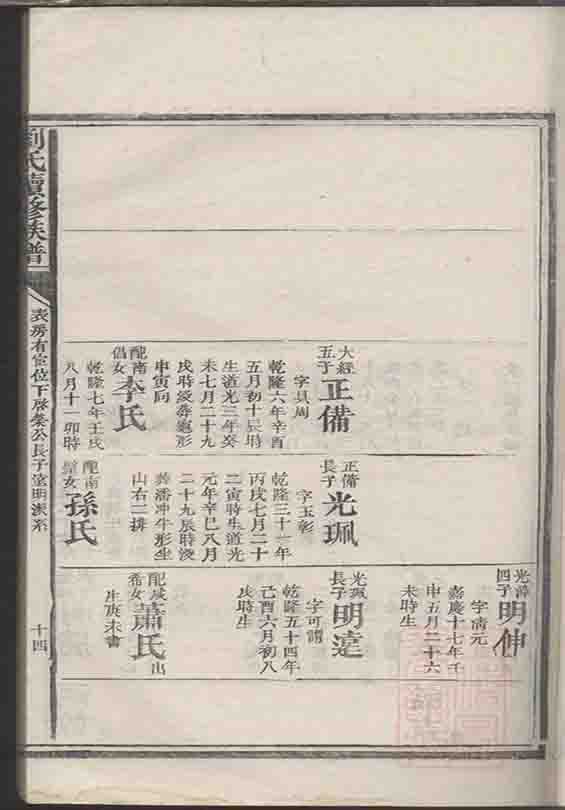 大經
五子
正備
字具周
乾隆六年辛酉
五月初十辰時
生道光三年癸
未七月二十九
戌時歿葬龜形
申寅向
配南
倡女
李氏
乾隆七年壬戌
八月十一卯時
正備
長子
光珮
字玉彰
乾隆三十一年
丙戌七月二十
二寅時生道光
元年辛巳八月
二十九辰時歿
葬潘冲牛形坐
山右二排
配南
女
孫氏
光
四子
明伸
字清元
嘉慶十七年壬
申五月二十六
未時生
光珮
長子
明達
字可謂
乾隆五十四年
己酉六月初八
戌時生
配
女
蕭氏
出
生庚未書
劉氏續修族譜
表房有宦位下啓榮公長子
明派系
十四